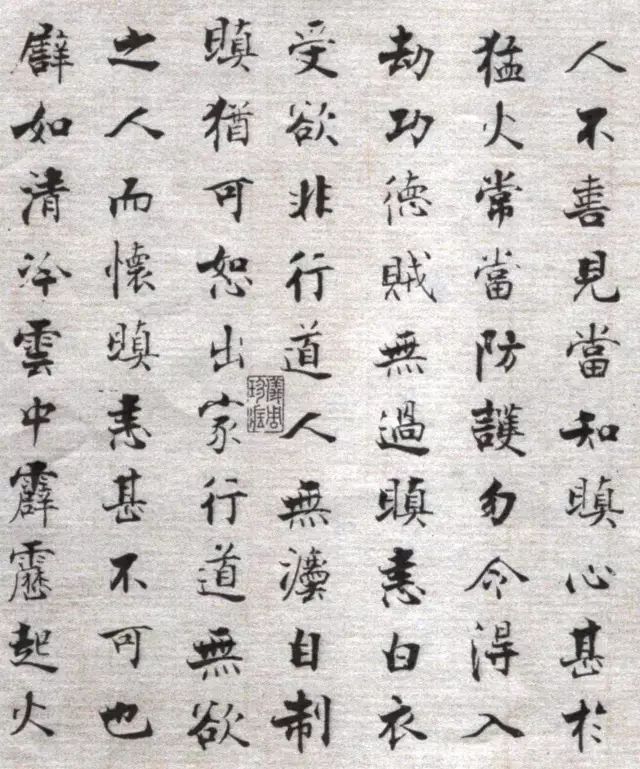 人不善見當知瞋心甚於
猛火常當防護勿令得入
劫功德賊無過瞋恚白衣
受欲非行道人無灋自制
瞋猶可恕出家行道無欲
之人而懷瞋恚甚不可也
譬如清冷雲中霹靂起火
儀周珍藏